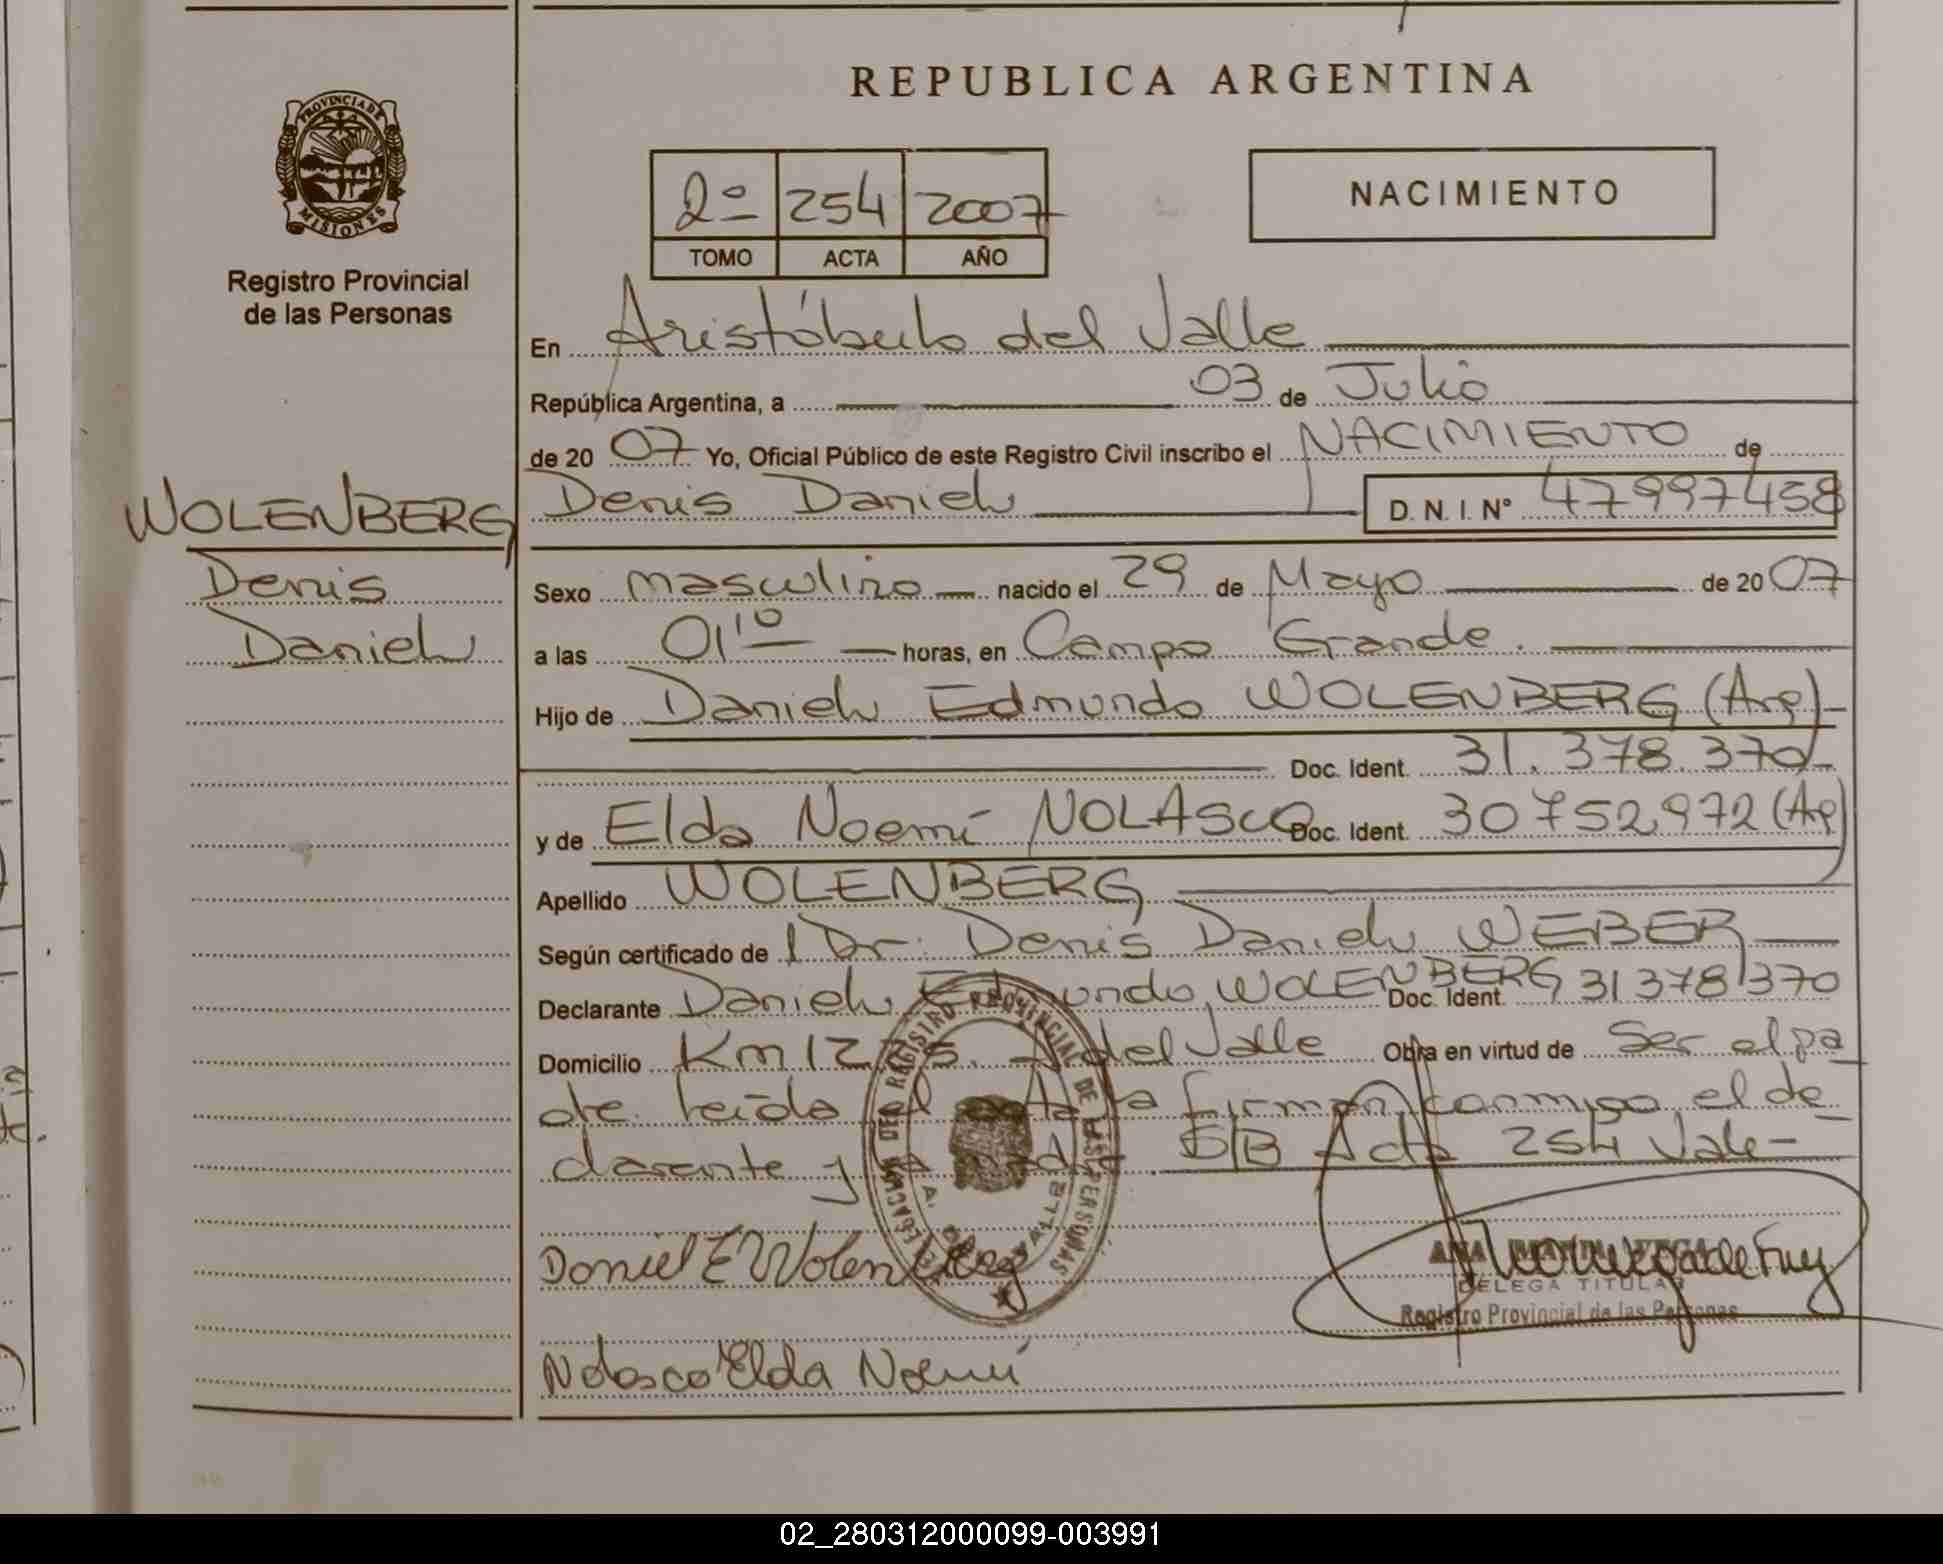 REPUBLICA ARGENTINA
PROVINCIA DE MISIONES
Registro Provincial
de las Personas
2º 254 2007
TOMO ACTA AÑO
NACIMIENTO
En Aristóbulo del Valle
República Argentina, a 03 de Julio
de 20 07 Yo, Oficial Público de este Registro Civil inscribo el NACIMIENTO de
Denis Daniel D. N. I. Nº 47997458
WOLENBERG
Denis
Daniel
Sexo masculino nacido el 29 de Mayo de 20 07
a las 01'10 horas, en Campo Grande.
Hijo de Daniel Edmundo WOLENBERG (Arg)
Doc. Ident. 31.378.370
y de Elda Noemí NOLASCO Doc. Ident. 30752972 (Arg)
Apellido WOLENBERG
Según certificado de l Dr. Denis Daniel WEBER
Declarante Daniel Edmundo WOLENBERG Doc. Ident. 31378370
Domicilio Km 12 A. del Valle Obra en virtud de Ser el pa
dre. leída el Acta firman conmigo, el de
clarante y la madre. S/B Acta 254 Vale
DELEGACION DEL REGISTRO PROVINCIAL DE LAS PERSONAS
A. DEL VALLE
Daniel E Wolenberg
ANA MARIA VEGA
DELEGA TITULAR
Registro Provincial de las Personas
Nolasco Elda Noemí
02_280312000099-003991